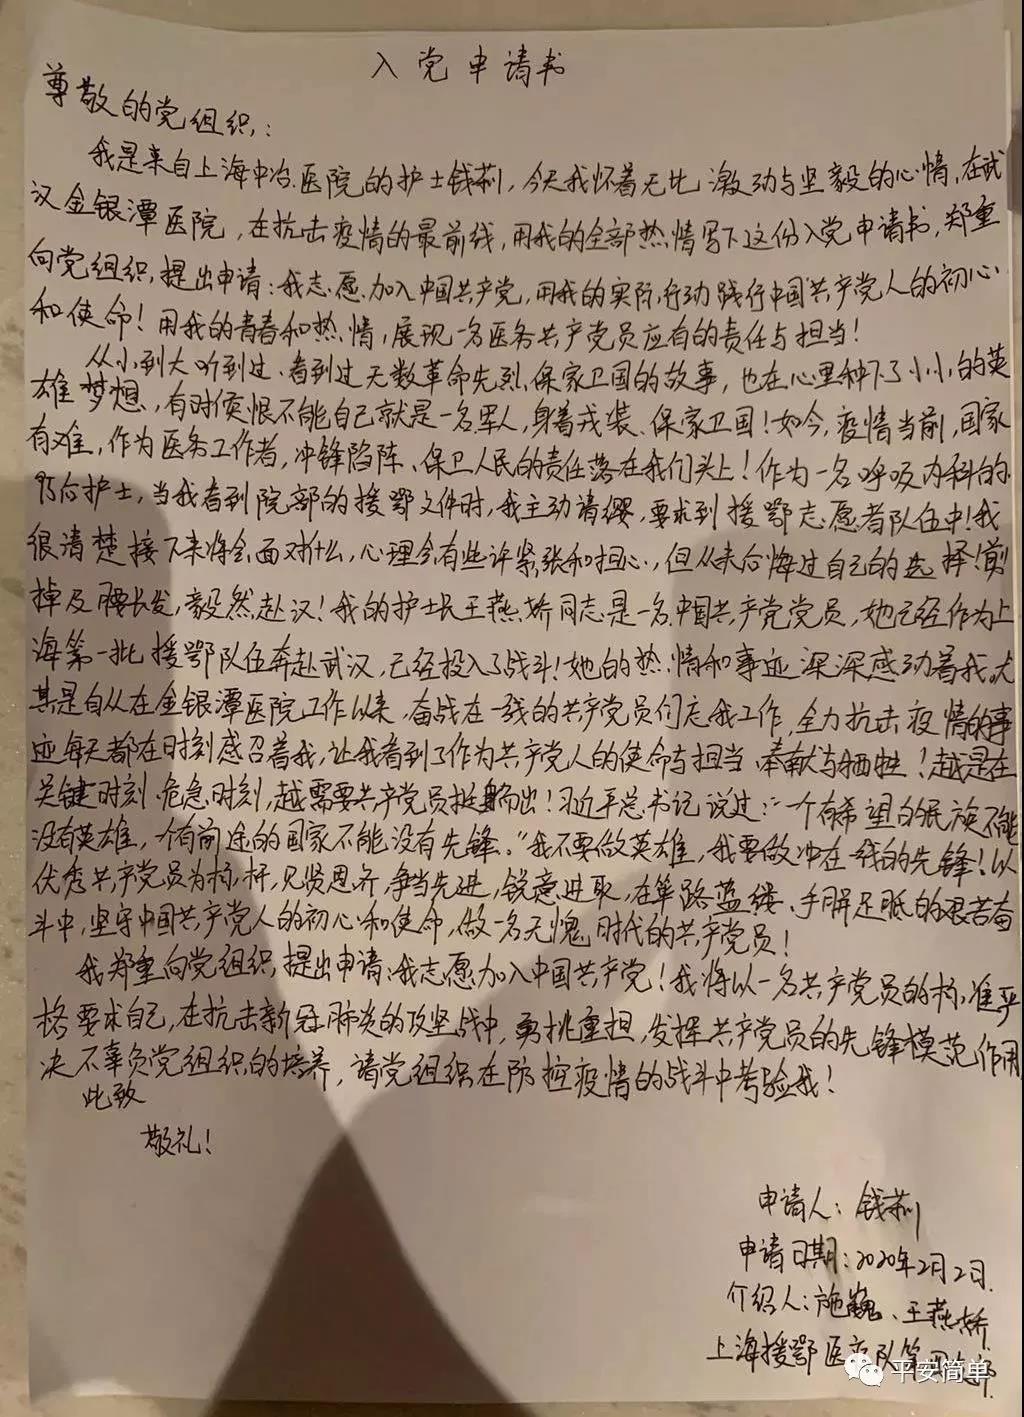 入党申请书
尊敬的党组织:
我是来自上海中冶医院的护士钱莉,今天我怀着无比激动与坚毅的心情,在武
汉金银潭医院,在抗击疫情的最前线,用我的全部热情写下这份入党申请书,郑重
向党组织提出申请:我志愿加入中国共产党,用我的实际行动践行中国共产党人的初心
和使命!用我的青春和热情,展现一名医务共产党员应有的责任与担当!
从小到大听到过、看到过无数革命先烈、保家卫国的故事,也在心里种下了小小的英
雄梦想,有时候恨不能自己就是一名军人,身着戎装、保家卫国!如今,疫情当前,国家
有难,作为医务工作者,冲锋陷阵、保卫人民的责任落在我们头上!作为一名呼吸内科的
95后护士,当我看到院部的援鄂文件时,我主动请缨,要求到援鄂志愿者队伍中!我
很清楚接下来将会面对什么,心理会有些许紧张和担心,但从未后悔过自己的选择!剪
掉及腰长发,毅然赴汉!我的护士长王燕娇同志是一名中国共产党党员,她已经作为上
海第一批援鄂队伍奔赴武汉,已经投入了战斗!她的热情和事迹深深感动着我,尤
其是自从在金银潭医院工作以来,奋战在一线的共产党员们忘我工作,全力抗击疫情的事
迹每天都在时刻感召着我,让我看到了作为共产党人的使命与担当、奉献与牺牲!越是在
关键时刻、危急时刻,越需要共产党员挺身而出!习近平总书记说过:“一个有希望的民族不能
没有英雄,一个有前途的国家不能没有先锋。”我不要做英雄,我要做冲在一线的先锋!以
优秀共产党员为标杆,见贤思齐,争当先进,锐意进取,在筚路蓝缕、手胼足胝的艰苦奋
斗中,坚守中国共产党人的初心和使命,做一名无愧时代的共产党员!
我郑重向党组织提出申请:我志愿加入中国共产党!我将以一名共产党员的标准严
格要求自己,在抗击新冠肺炎的攻坚战中,勇挑重担,发挥共产党员的先锋模范作用
决不辜负党组织的培养,请党组织在防控疫情的战斗中考验我!
此致
敬礼!
申请人:钱莉
申请日期:2020年2月2日.
介绍人:施巍、王燕娇
上海援鄂医疗队第
平安简单